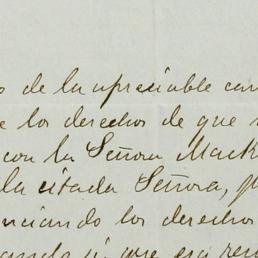 de la apreciable
los derechos de que
con la Señora Mack
la citada Señora,
nciando los derechos
que era